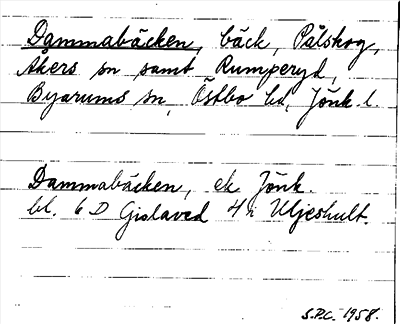 Dammabäcken, bäck, Pålskog,
Åkers sn samt Rumperyd,
Byarums sn, Östbo hd, Jönk. l.
Dammabäcken, ek Jönk.
bl. 6 D Gislaved 4h Uljeshult.
S.P.C. 1958.